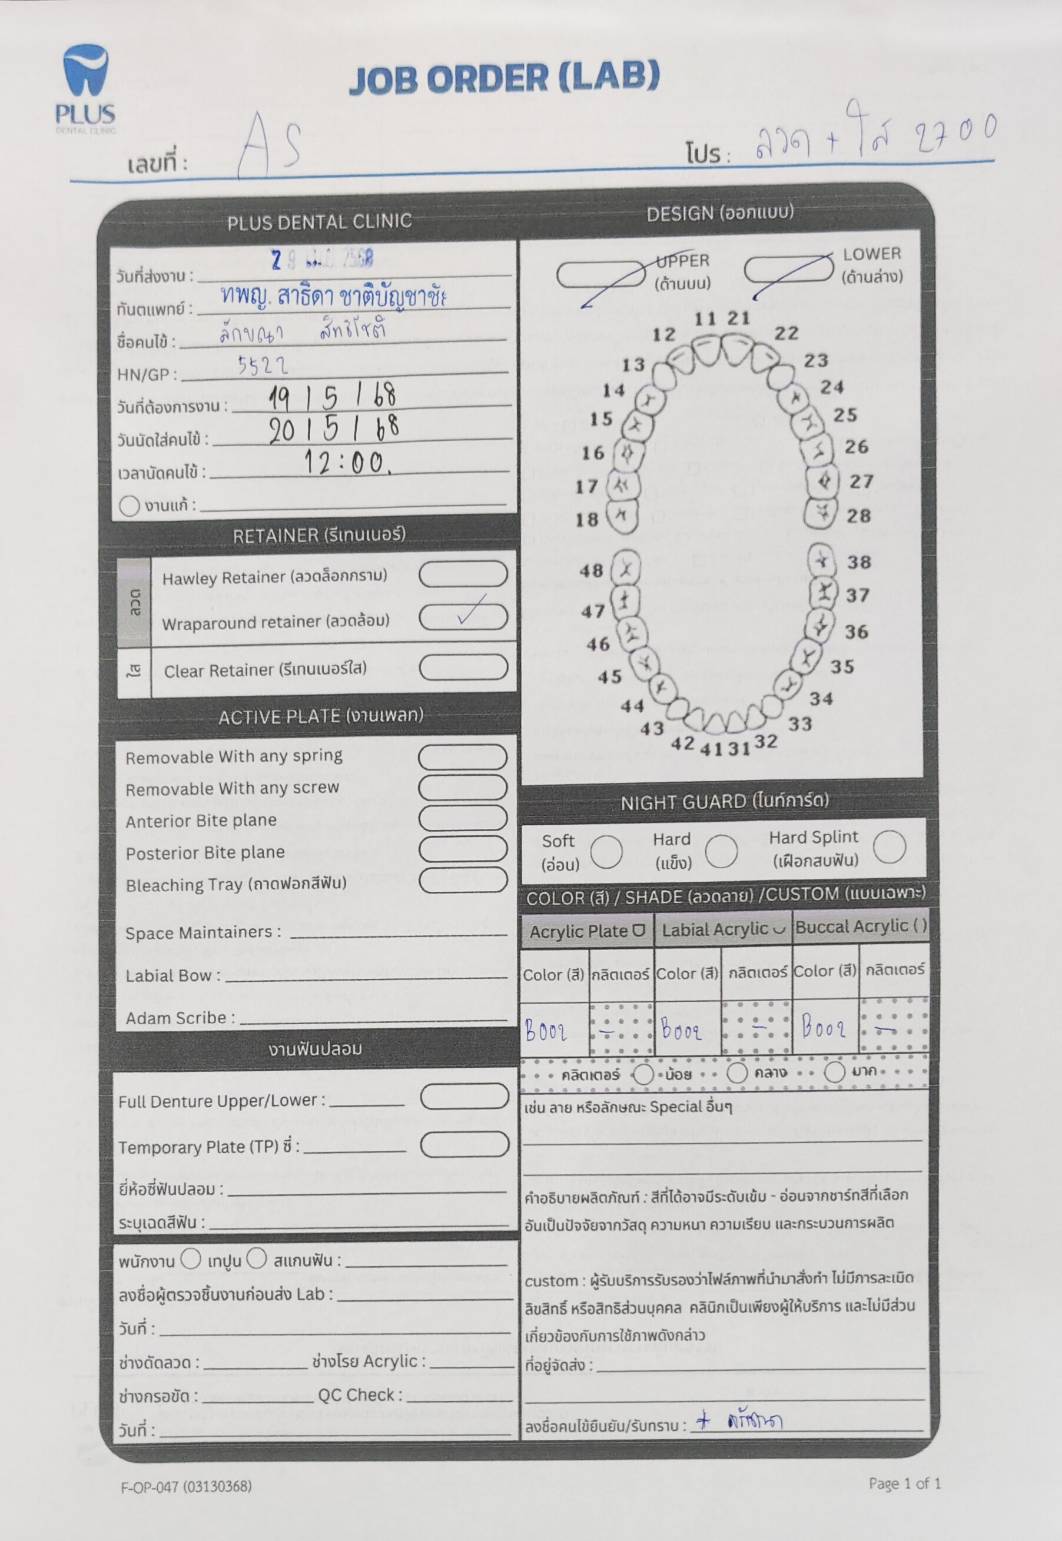 PLUS
DENTAL CLINIC
JOB ORDER (LAB)
เลขที่ : AS
โปร : ลวด + ใส 2700
PLUS DENTAL CLINIC
วันที่ส่งงาน : 2568
ทันตแพทย์ : ทพญ. สาธิดา ชาติบัญชาชัย
ชื่อคนไข้ :
HN/GP : 5522
วันที่ต้องการงาน : 19 / 5 / 68
วันนัดใส่คนไข้ : 20 / 5 / 68
เวลานัดคนไข้ : 12:00.
งานแก้ :
RETAINER (รีเทนเนอร์)
ลวด
Hawley Retainer (ลวดล็อกกราม)
Wraparound retainer (ลวดล้อม) ✓
ใส
Clear Retainer (รีเทนเนอร์ใส)
ACTIVE PLATE (งานเพลท)
Removable With any spring
Removable With any screw
Anterior Bite plane
Posterior Bite plane
Bleaching Tray (ถาดฟอกสีฟัน)
Space Maintainers :
Labial Bow :
Adam Scribe :
งานฟันปลอม
Full Denture Upper/Lower :
Temporary Plate (TP) ซี่ :
ยี่ห้อซี่ฟันปลอม :
ระบุเฉดสีฟัน :
พนักงาน เทปูน สแกนฟัน :
ลงชื่อผู้ตรวจชิ้นงานก่อนส่ง Lab :
วันที่ :
ช่างดัดลวด : ช่างโรย Acrylic :
ช่างกรอขัด : QC Check :
วันที่ :
DESIGN (ออกแบบ)
UPPER
(ด้านบน)
LOWER
(ด้านล่าง)
11 21
12 22
13 23
14 24
15 25
16 26
17 27
18 28
48 38
47 37
46 36
45 35
44 34
43 33
42 41 31 32
NIGHT GUARD (ไนท์การ์ด)
Soft
(อ่อน)
Hard
(แข็ง)
Hard Splint
(เฝือกสบฟัน)
COLOR (สี) / SHADE (ลวดลาย) /CUSTOM (แบบเฉพาะ)
Acrylic Plate Labial Acrylic Buccal Acrylic ( )
Color (สี) กลิตเตอร์ Color (สี) กลิตเตอร์ Color (สี) กลิตเตอร์
B002 – B002 – B002 –
กลิตเตอร์ น้อย กลาง มาก
เช่น ลาย หรือลักษณะ Special อื่นๆ
คำอธิบายผลิตภัณฑ์ : สีที่ได้อาจมีระดับเข้ม - อ่อนจากชาร์ทสีที่เลือก
อันเป็นปัจจัยจากวัสดุ ความหนา ความเรียบ และกระบวนการผลิต
custom : ผู้รับบริการรับรองว่าไฟล์ภาพที่นำมาสั่งทำ ไม่มีการละเมิด
ลิขสิทธิ์ หรือสิทธิส่วนบุคคล คลินิกเป็นเพียงผู้ให้บริการ และไม่มีส่วน
เกี่ยวข้องกับการใช้ภาพดังกล่าว
ที่อยู่จัดส่ง :
ลงชื่อคนไข้ยืนยัน/รับทราบ : +
F-OP-047 (03130368)
Page 1 of 1